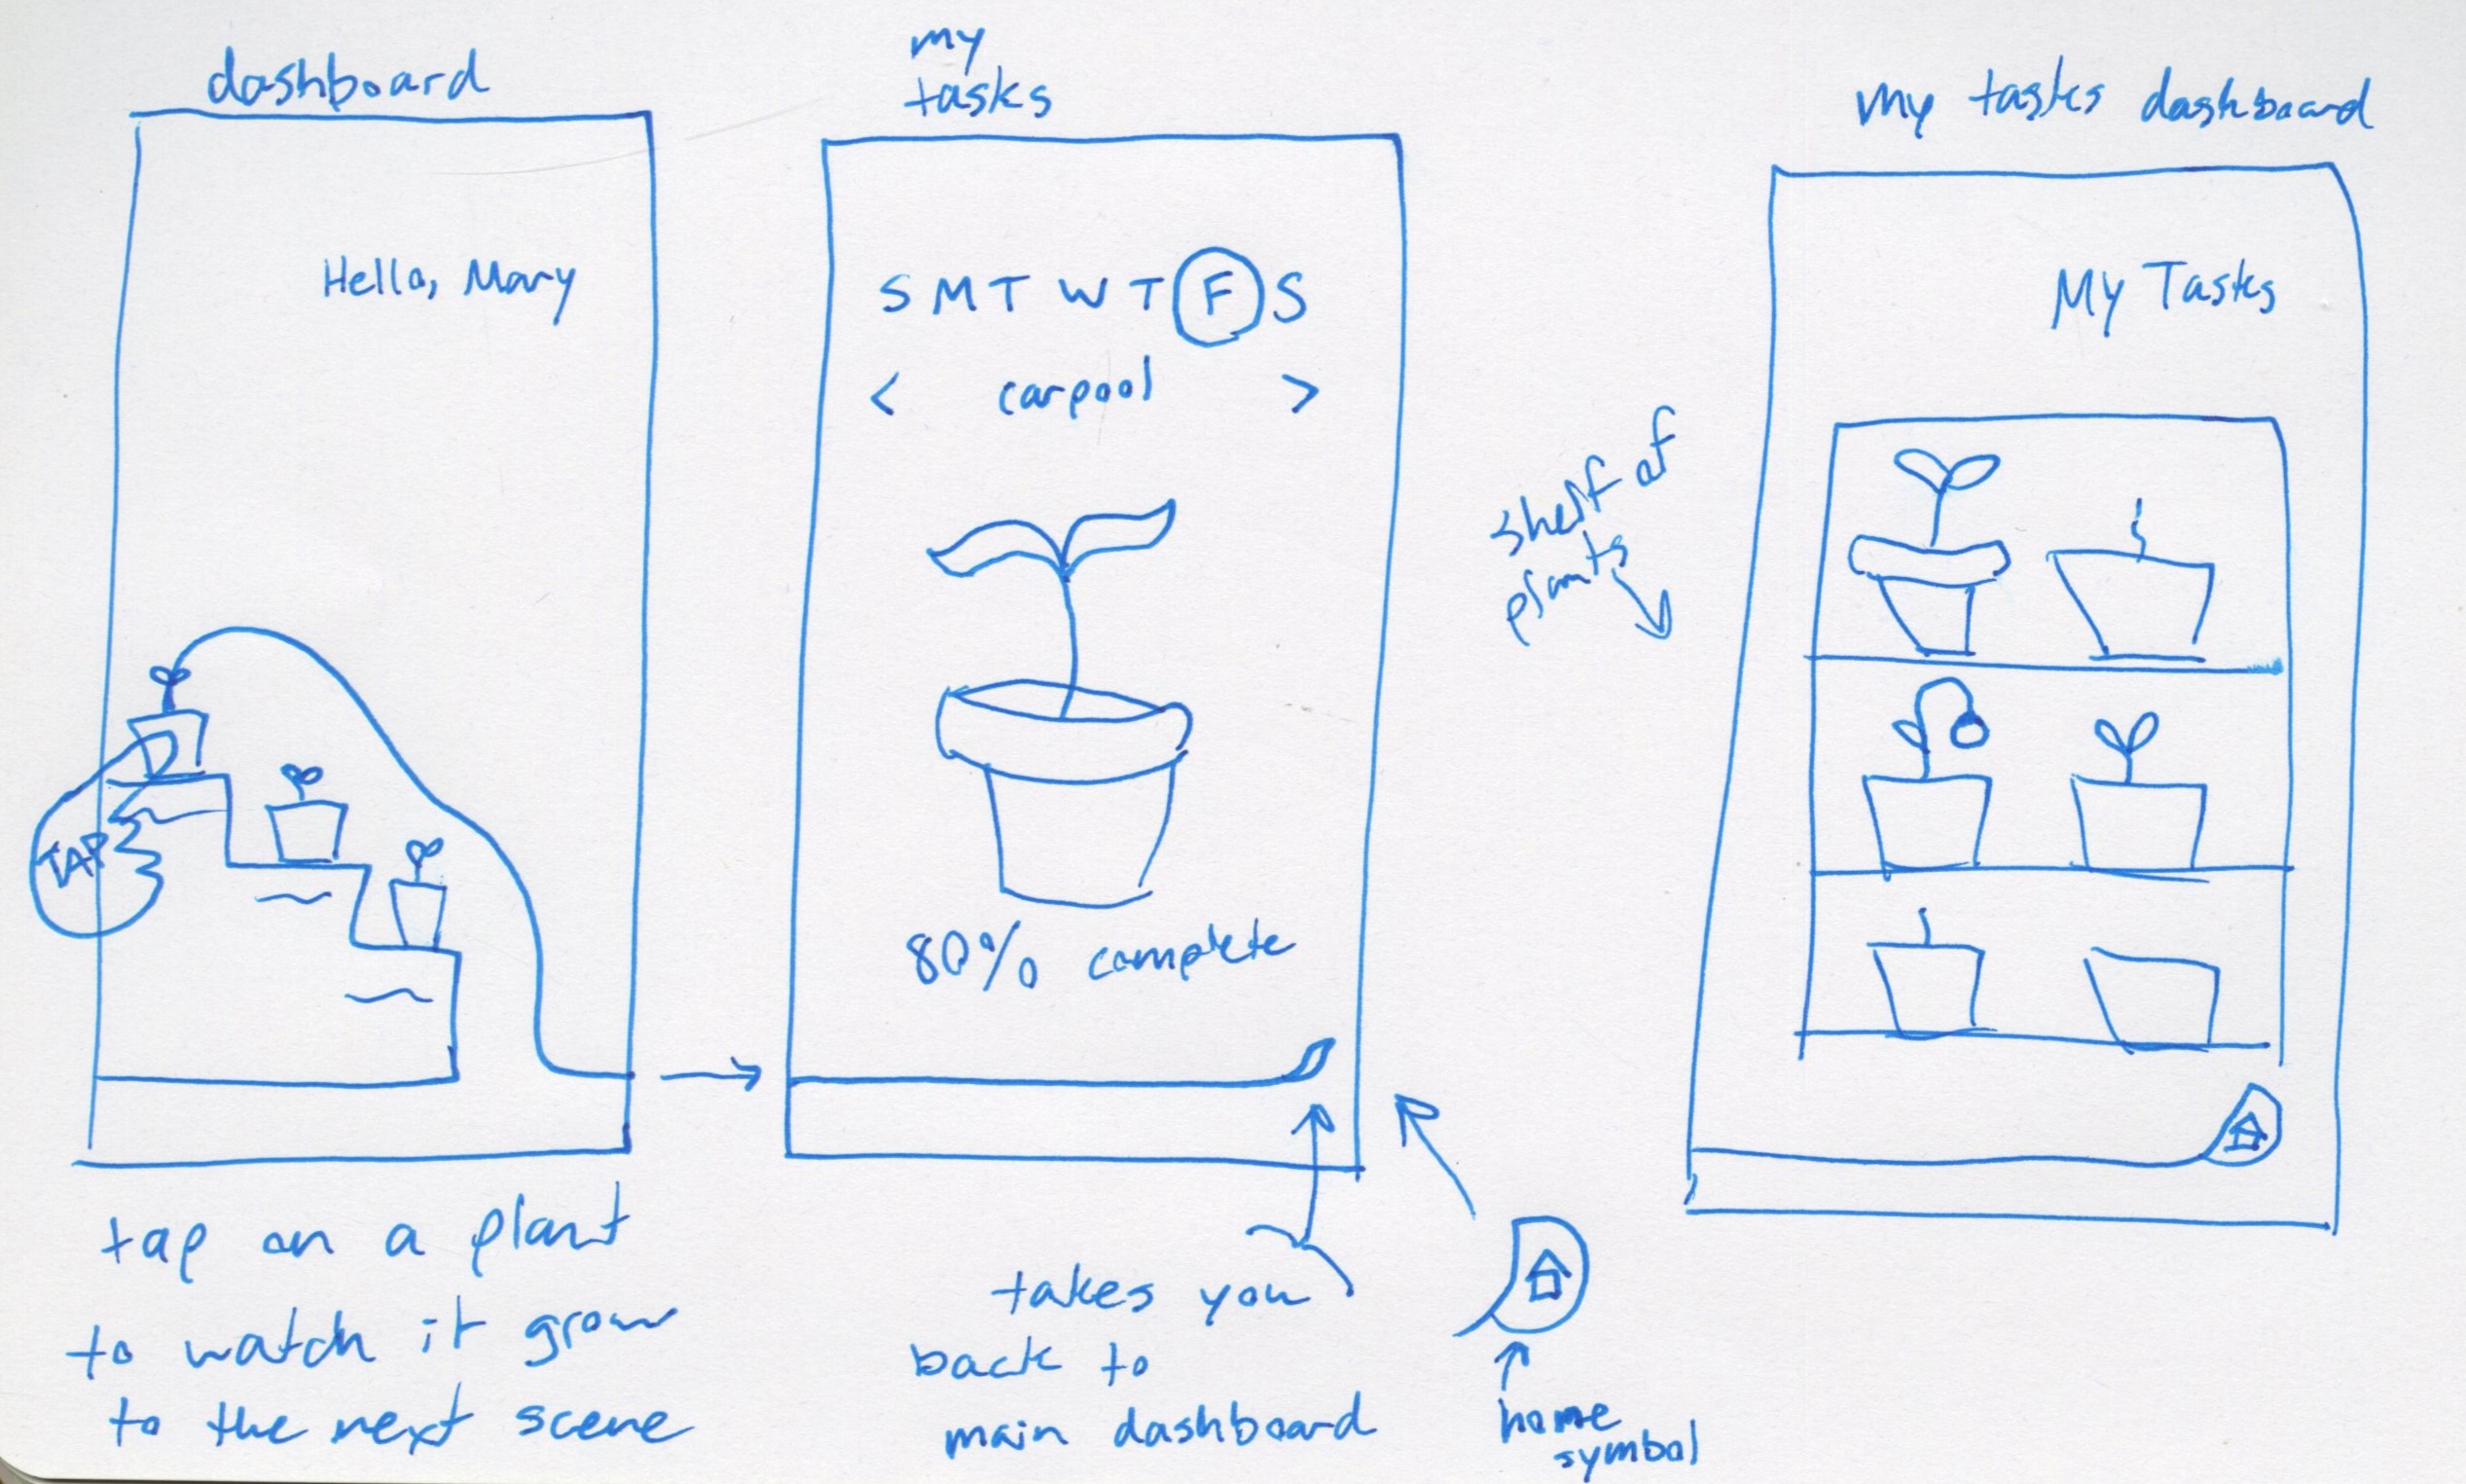 dashboard
Hello, Mary
TAP
tap on a plant
to watch it grow
to the next scene
my
tasks
S M T W T F S
< carpool >
80% complete
takes you
back to
main dashboard
home
symbol
shelf of
plants
my tasks dashboard
My Tasks